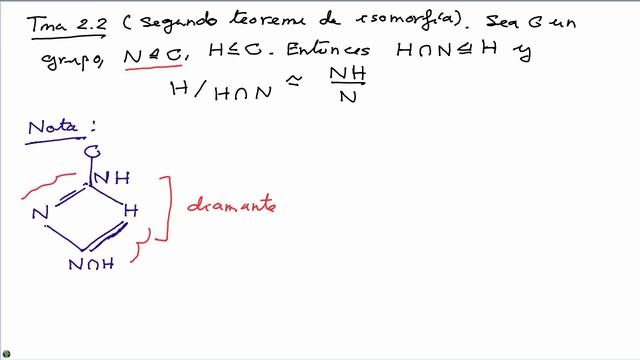 Tma 2.2 (Segundo teorema de isomorfía). Sea G un
grupo, N ⊴ G, H ≤ G. Entonces H∩N ⊴ H y
H / H∩N ≃ NH / N
Nota:
G
NH
N H
diamante
N∩H